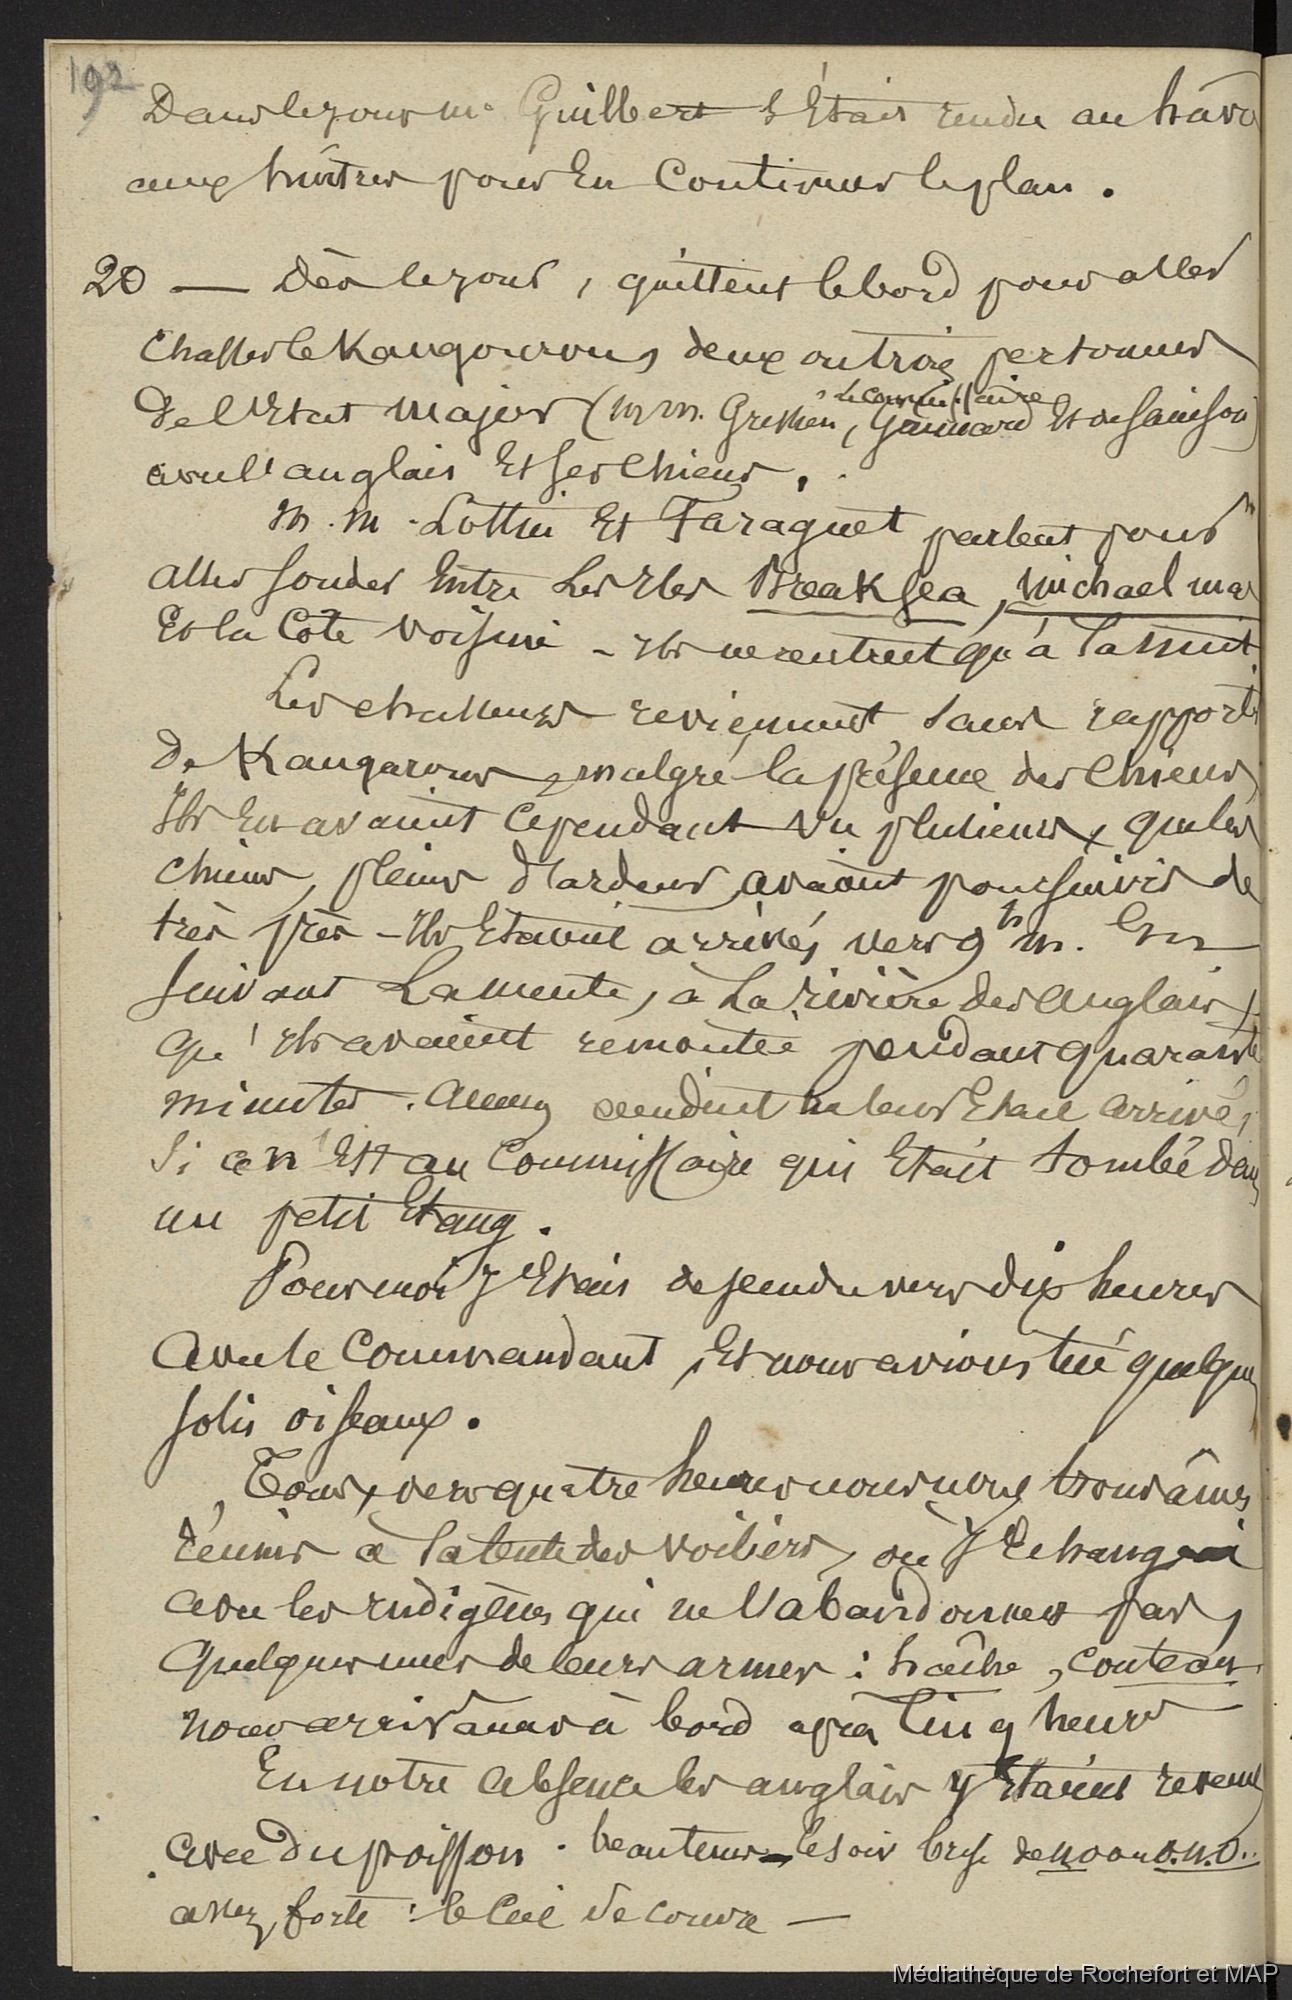 192
Dans le jour Mr Guilbert s'était rendu au hâvre
aux huîtres pour en continuer le plan.
20 — Dès le jour, quittent le bord pour aller
chasser le Kangourou, deux ou trois personnes
de l'Etat major (M.M. Gressien, Gaimard et de Sainson)
le commissaire
avec l'anglais et ses chiens.
M.M. Lottin et Faraguet partent pour
aller sonder entre les Iles Break Sea, Michael mas
et la Côte voisine - Ils ne rentrent qu'à la nuit.
Les chasseurs reviennent sans rapporter
de Kangarous, malgré la présence des chiens,
Ils en avaient cependant vu plusieurs, que les
chiens, pleins d'ardeur, avaient poursuivis de
très près - Ils étaient arrivés vers 9 h m. En
suivant la meute, à la rivière des Anglais,
qu'ils avaient remontée pendant quarante
minutes. Aucun accident ne leur était arrivé,
si ce n'est au Commissaire qui était tombé dans
un petit étang.
Pour moi j'étais descendu vers dix heures
avec le Commandant, et nous avions tué quelques
jolis oiseaux.
Tous, vers quatre heures nous nous trouvâmes
réunis à la tente des voiliers, où j'échangeai
avec les indigènes qui ne l'abandonnent pas,
quelques unes de leurs armes : hache, couteau.
nous arrivames à bord après cinq heures
En notre absence les anglais y étaient revenus
avec du poisson. beau tems - le soir brise de NO au O.N.O..
assez forte : le ciel se couvre —
Médiathèque de Rochefort et MAP